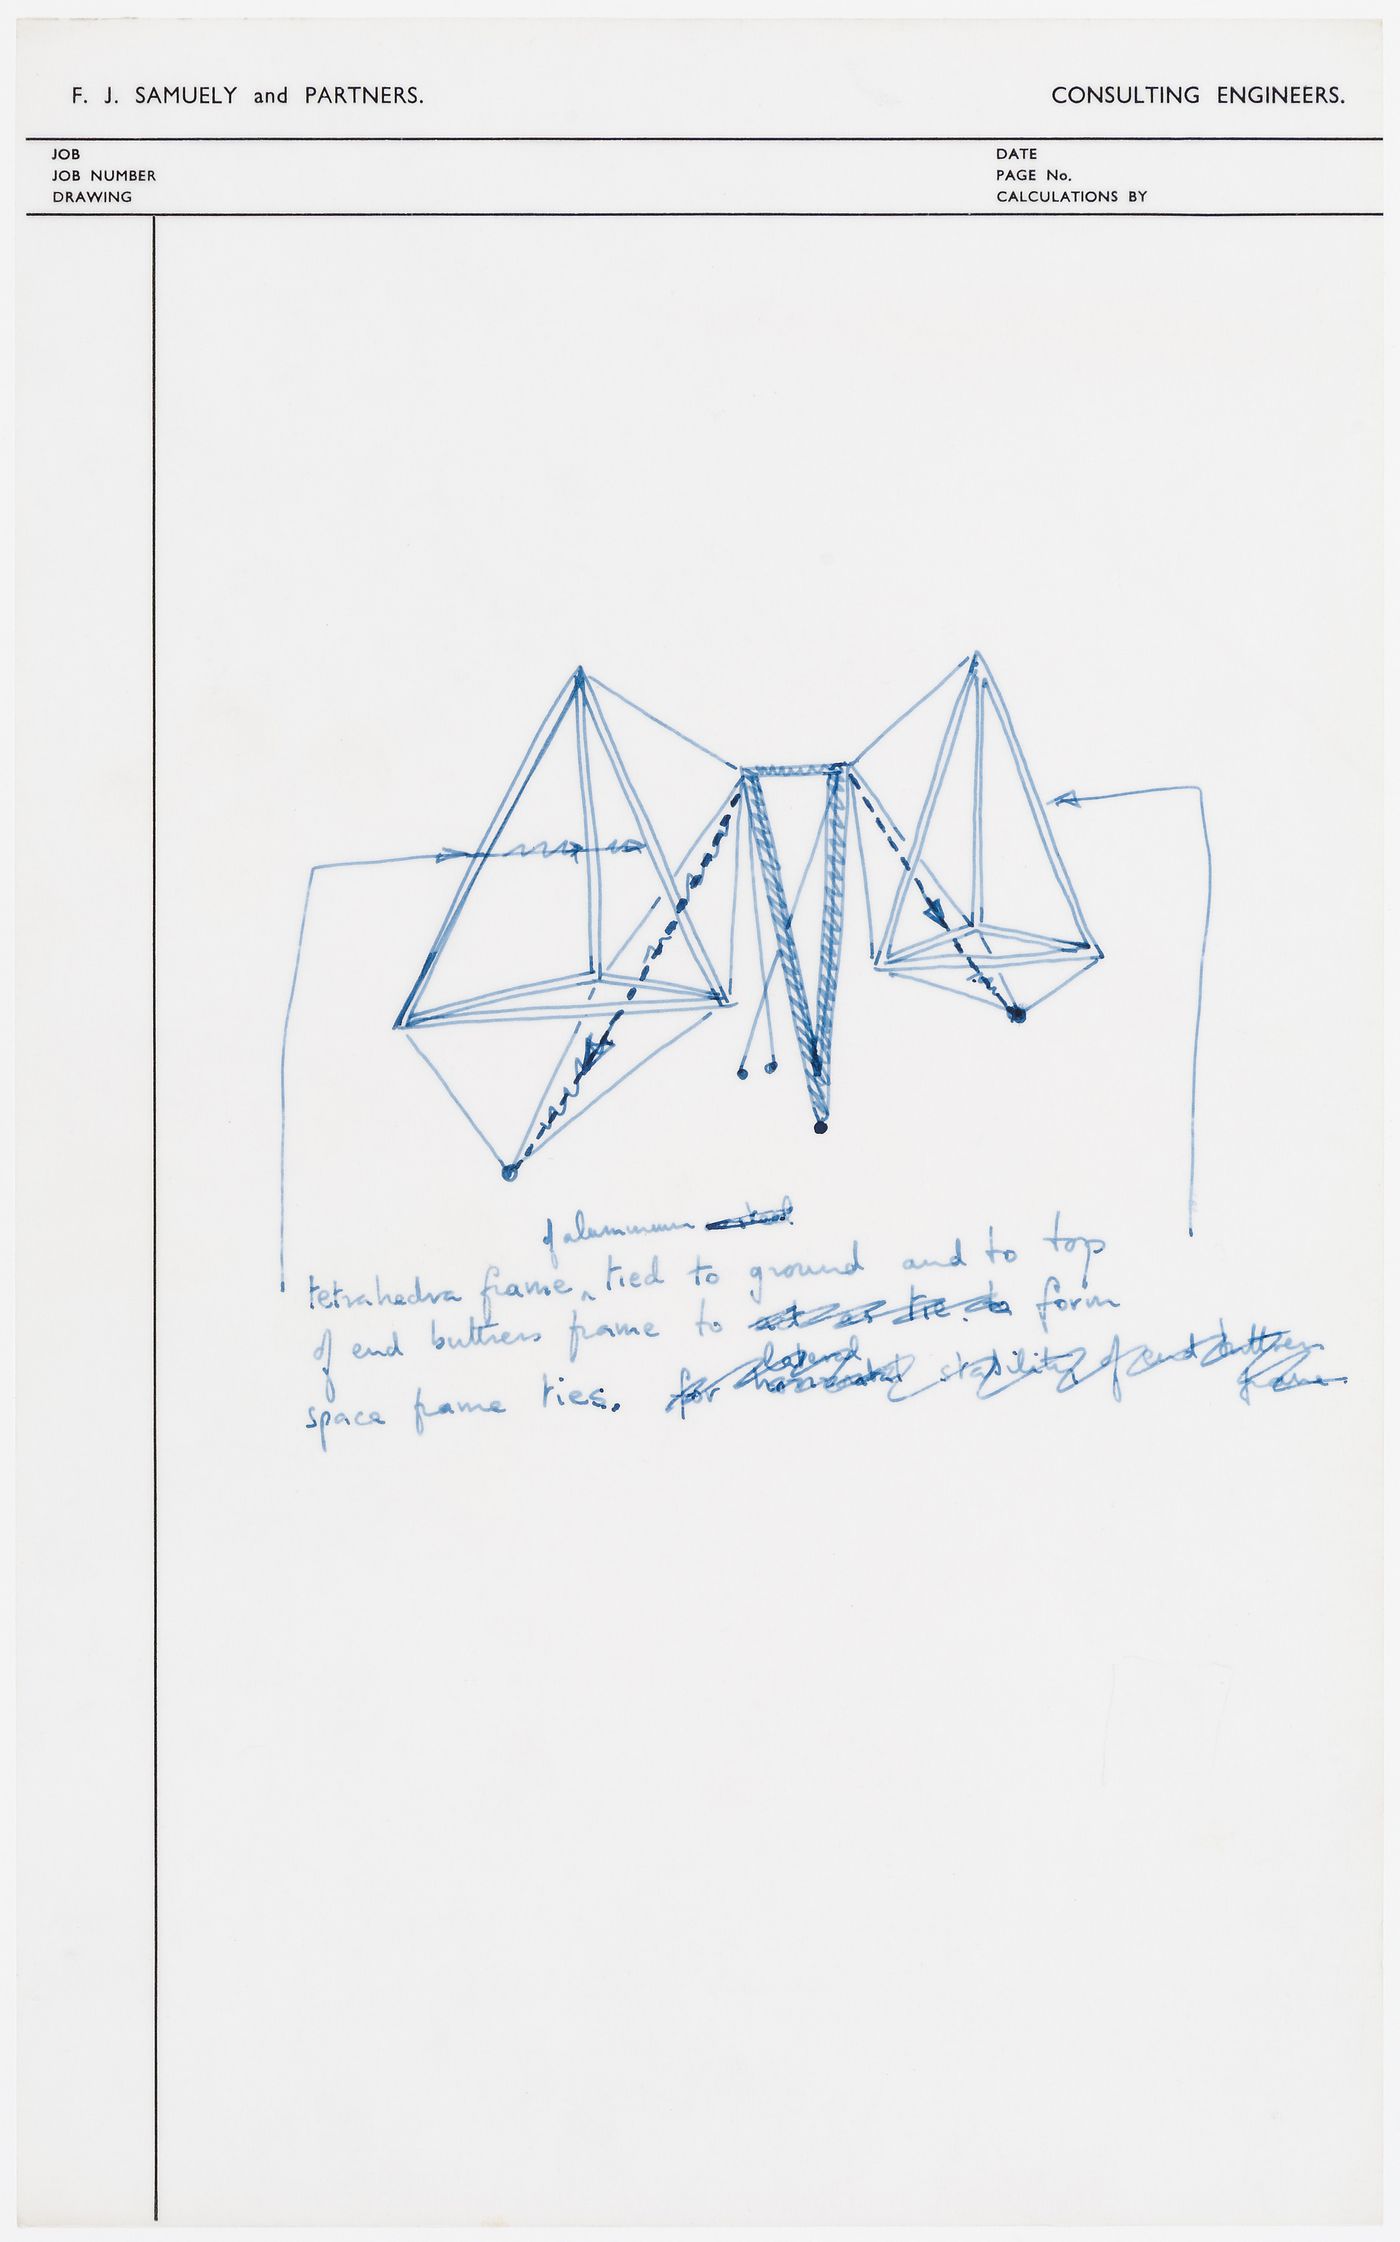 F. J. SAMUELY and PARTNERS.
CONSULTING ENGINEERS.
JOB
JOB NUMBER
DRAWING
DATE
PAGE No.
CALCULATIONS BY
of aluminium steel
tetrahedra frame tied to ground and to top
of end buttress frame to act as tie to form
space frame ties. for horizontal stability of end buttress
lateral
frame